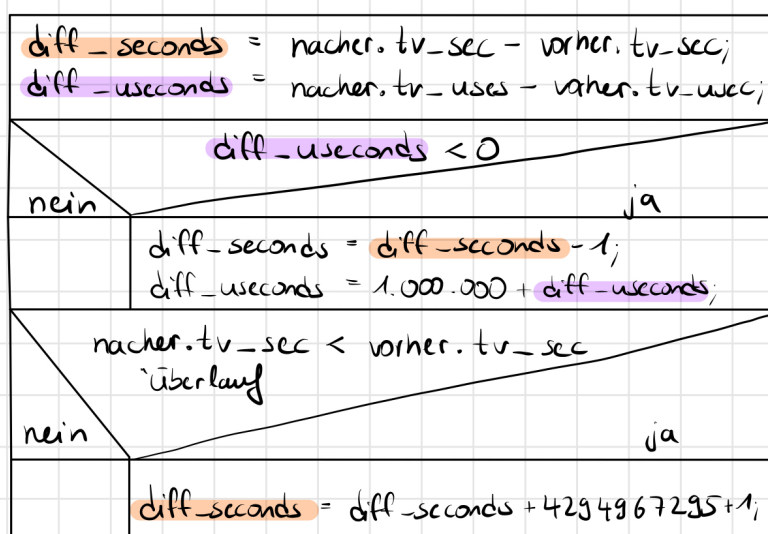 diff_seconds = nacher.tv_sec - vorher.tv_sec;
diff_useconds = nacher.tv_uses - vorher.tv_usec;
diff_useconds < 0
nein ja
diff_seconds = diff_seconds - 1;
diff_useconds = 1.000.000 + diff_useconds;
nacher.tv_sec < vorher.tv_sec
Überlauf
nein ja
diff_seconds = diff_seconds + 4294967295+1;